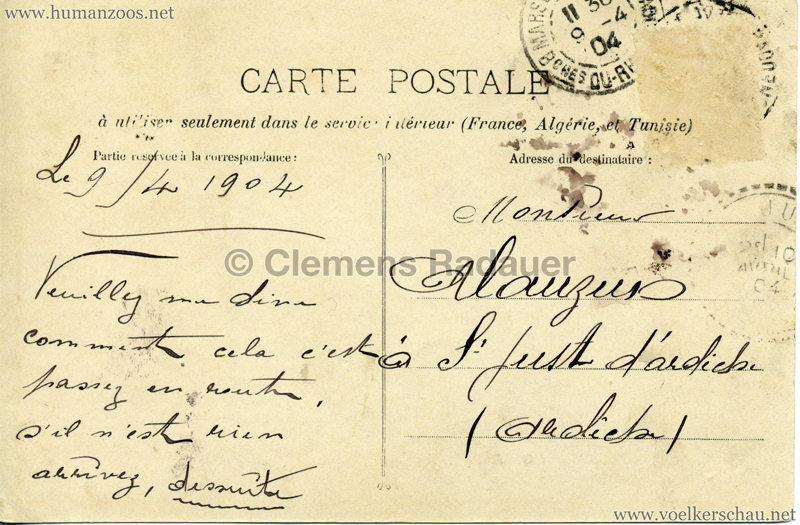 www.humanzoos.net
MARS
11 30
9 -4
04
BCHES DU-RH
CARTE POSTALE
à utiliser seulement dans le service intérieur (France, Algérie, et Tunisie)
Partie réservée à la correspondance :
Adresse du destinataire :
Le 9/4 1904
Monsieur
Veuillez me dire
comment cela c'est
passez en route,
s'il n'est rien
arrivez, dessuite
Alauzun
à St Just d'ardèche
(Ardèche)
JU
10
AVRIL
04
© Clemens Radauer
www.voelkerschau.net